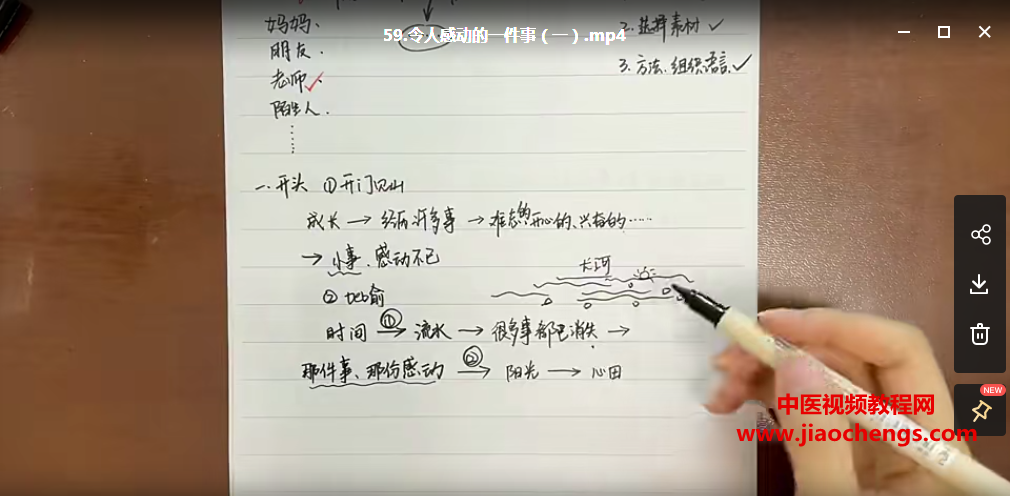 妈妈.
朋友.
老师✓.
陌生人.
......
59.令人感动的一件事(一).mp4
2.选择素材✓
3.方法.组织语言✓
一.开头 ①开门见山
成长→经历许多事→难忘的、开心的、兴奋的……
→小事、感动不已
长河
②比喻
时间 ① → 流水→很多事都已消失→
那件事、那份感动 ② → 阳光→心田
NEW
中医视频教程网
www.jiaochengs.com